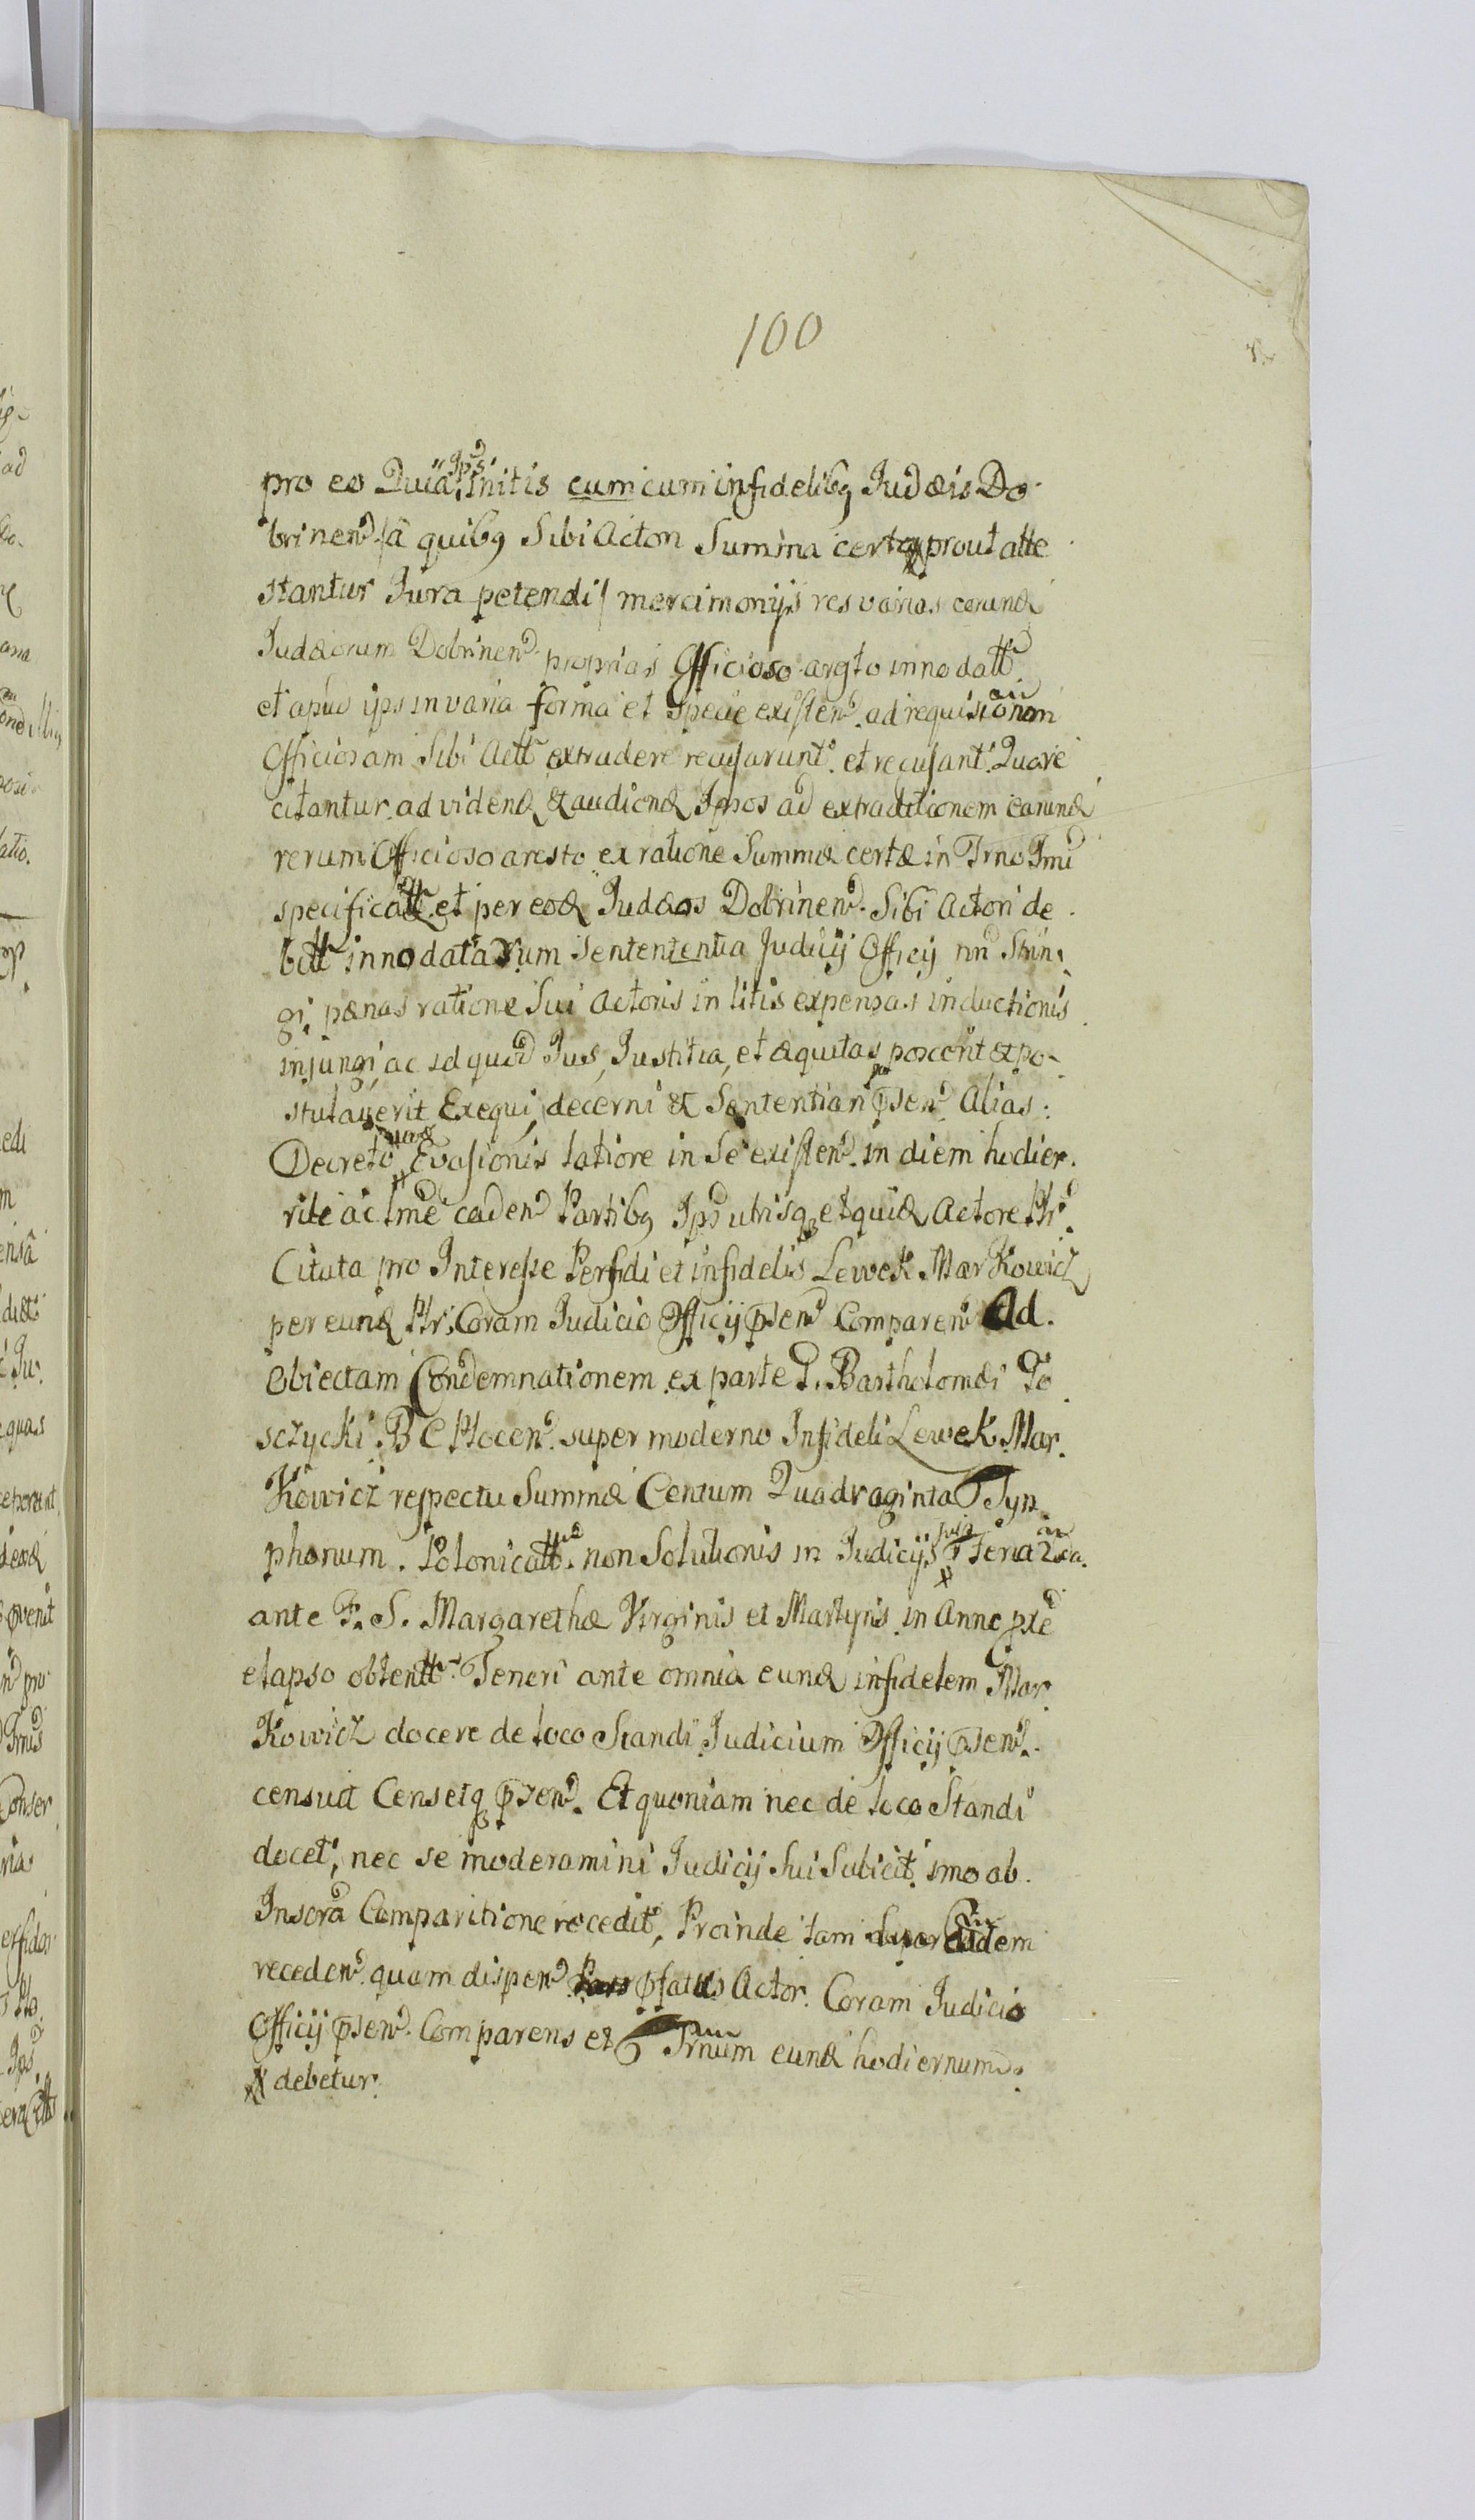 100
pro eo Quia Ips initis cum cum infidelibꝫ Judæis Do
brinenď /â quibꝫ Sibi Actori Summa certa prout atte
stantur Jura petendi/ mercimonijs res varias earundꝫ
Judæorum Dobrinenď proprias Officioso argto innodatt
et apud ips in varia forma et specie existenď ad requisionem
Officiosam Sibi Actt extrudere recusarunt et recusant Quare
citantur ad videndꝫ & audiendꝫ Ipsos ad extraditionem earundꝫ
rerum Officioso aresto ex ratione Summæ certæ in Trno Imi
specificatt et per eosdꝫ Judæos Dobrinenď Sibi Actori de
bitt innodatarum Sentententia Judicij Officij nri Strin
gi pænas ratione Sui Actoris in litis expensas inductionis
injungi ac id quid Jus, Justitia, et æquitas poscerit expo
stulaverit Exequi, decerni & Sententiari p̄senď Alias:
Decreto Evasionis latiore in Se existenď in diem hodier.
rite ac lme cadenď Partibꝫ Ips utrisqꝫ et quidꝫ Actore Ptr
Citata pro Interesse Perfidi et infidelis Lewek Markowicz
per eundꝫ Ptr, Coram Judicio Officij p̄senď Comparenď Ad
Obiectam Condemnationem ex parte T. Bartholomæi To
sczycki B C Plocenď super moderno Infideli Lewek Mar
Kowicz respectu Summæ Centum Quadraginta Tyn
phonum. Polonicatt non Solutionis in Judicijs Feria 2da
ante F. S. Margarethæ Virginis et Martyris in Anno pxe
elapso obtentt Teneri ante omnia eundꝫ infidelem Mar
Kowicz docere de loco Standi Judicium Officij p̄senď
censuit Censetqꝫ p̄senď. Et quoniam nec de loco Standi
docet, nec se moderamini Judicij Sui Subicit imo ab
Inscra Comparitione recedit, Proinde tam super Eadem
recedenď quam dispenď p̄fatus Actor. Coram Judicio
Officij p̄senď Comparens et Trnum eundꝫ hodiernum
debetur